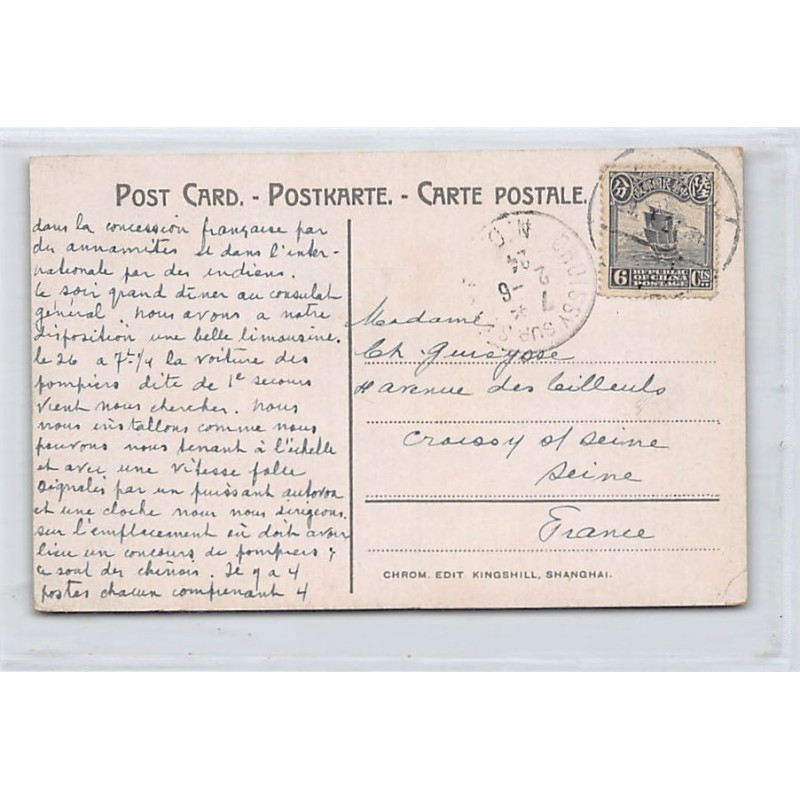 POST CARD. - POSTKARTE. - CARTE POSTALE.
dans la concession française par
des annamites et dans l'inter-
nationale par des indiens.
Le soir grand dîner au consulat
général. nous avons a notre
disposition une belle limousine.
le 26 a 7h 1/4 la voiture des
pompiers dite de 1e secours
vient nous chercher. nous
nous installons comme nous
pouvons nous tenant à l'échelle
et avec une vitesse folle
signalés par un puissant
et une cloche nous nous dirigeons
sur l'emplacement où doit avoir
lieu un concours de pompiers;
ce sont des chinois. Il y a 4
postes chacun comprenant 4
中華民國郵政
分
陸
6 REPUBLIC OF CHINA POSTAGE 6 CTS
CROISSY SUR
Madame
Ch.
avenue des Tilleuls
Croissy s/ Seine
Seine
France
CHROM. EDIT KINGSHILL, SHANGHAI.